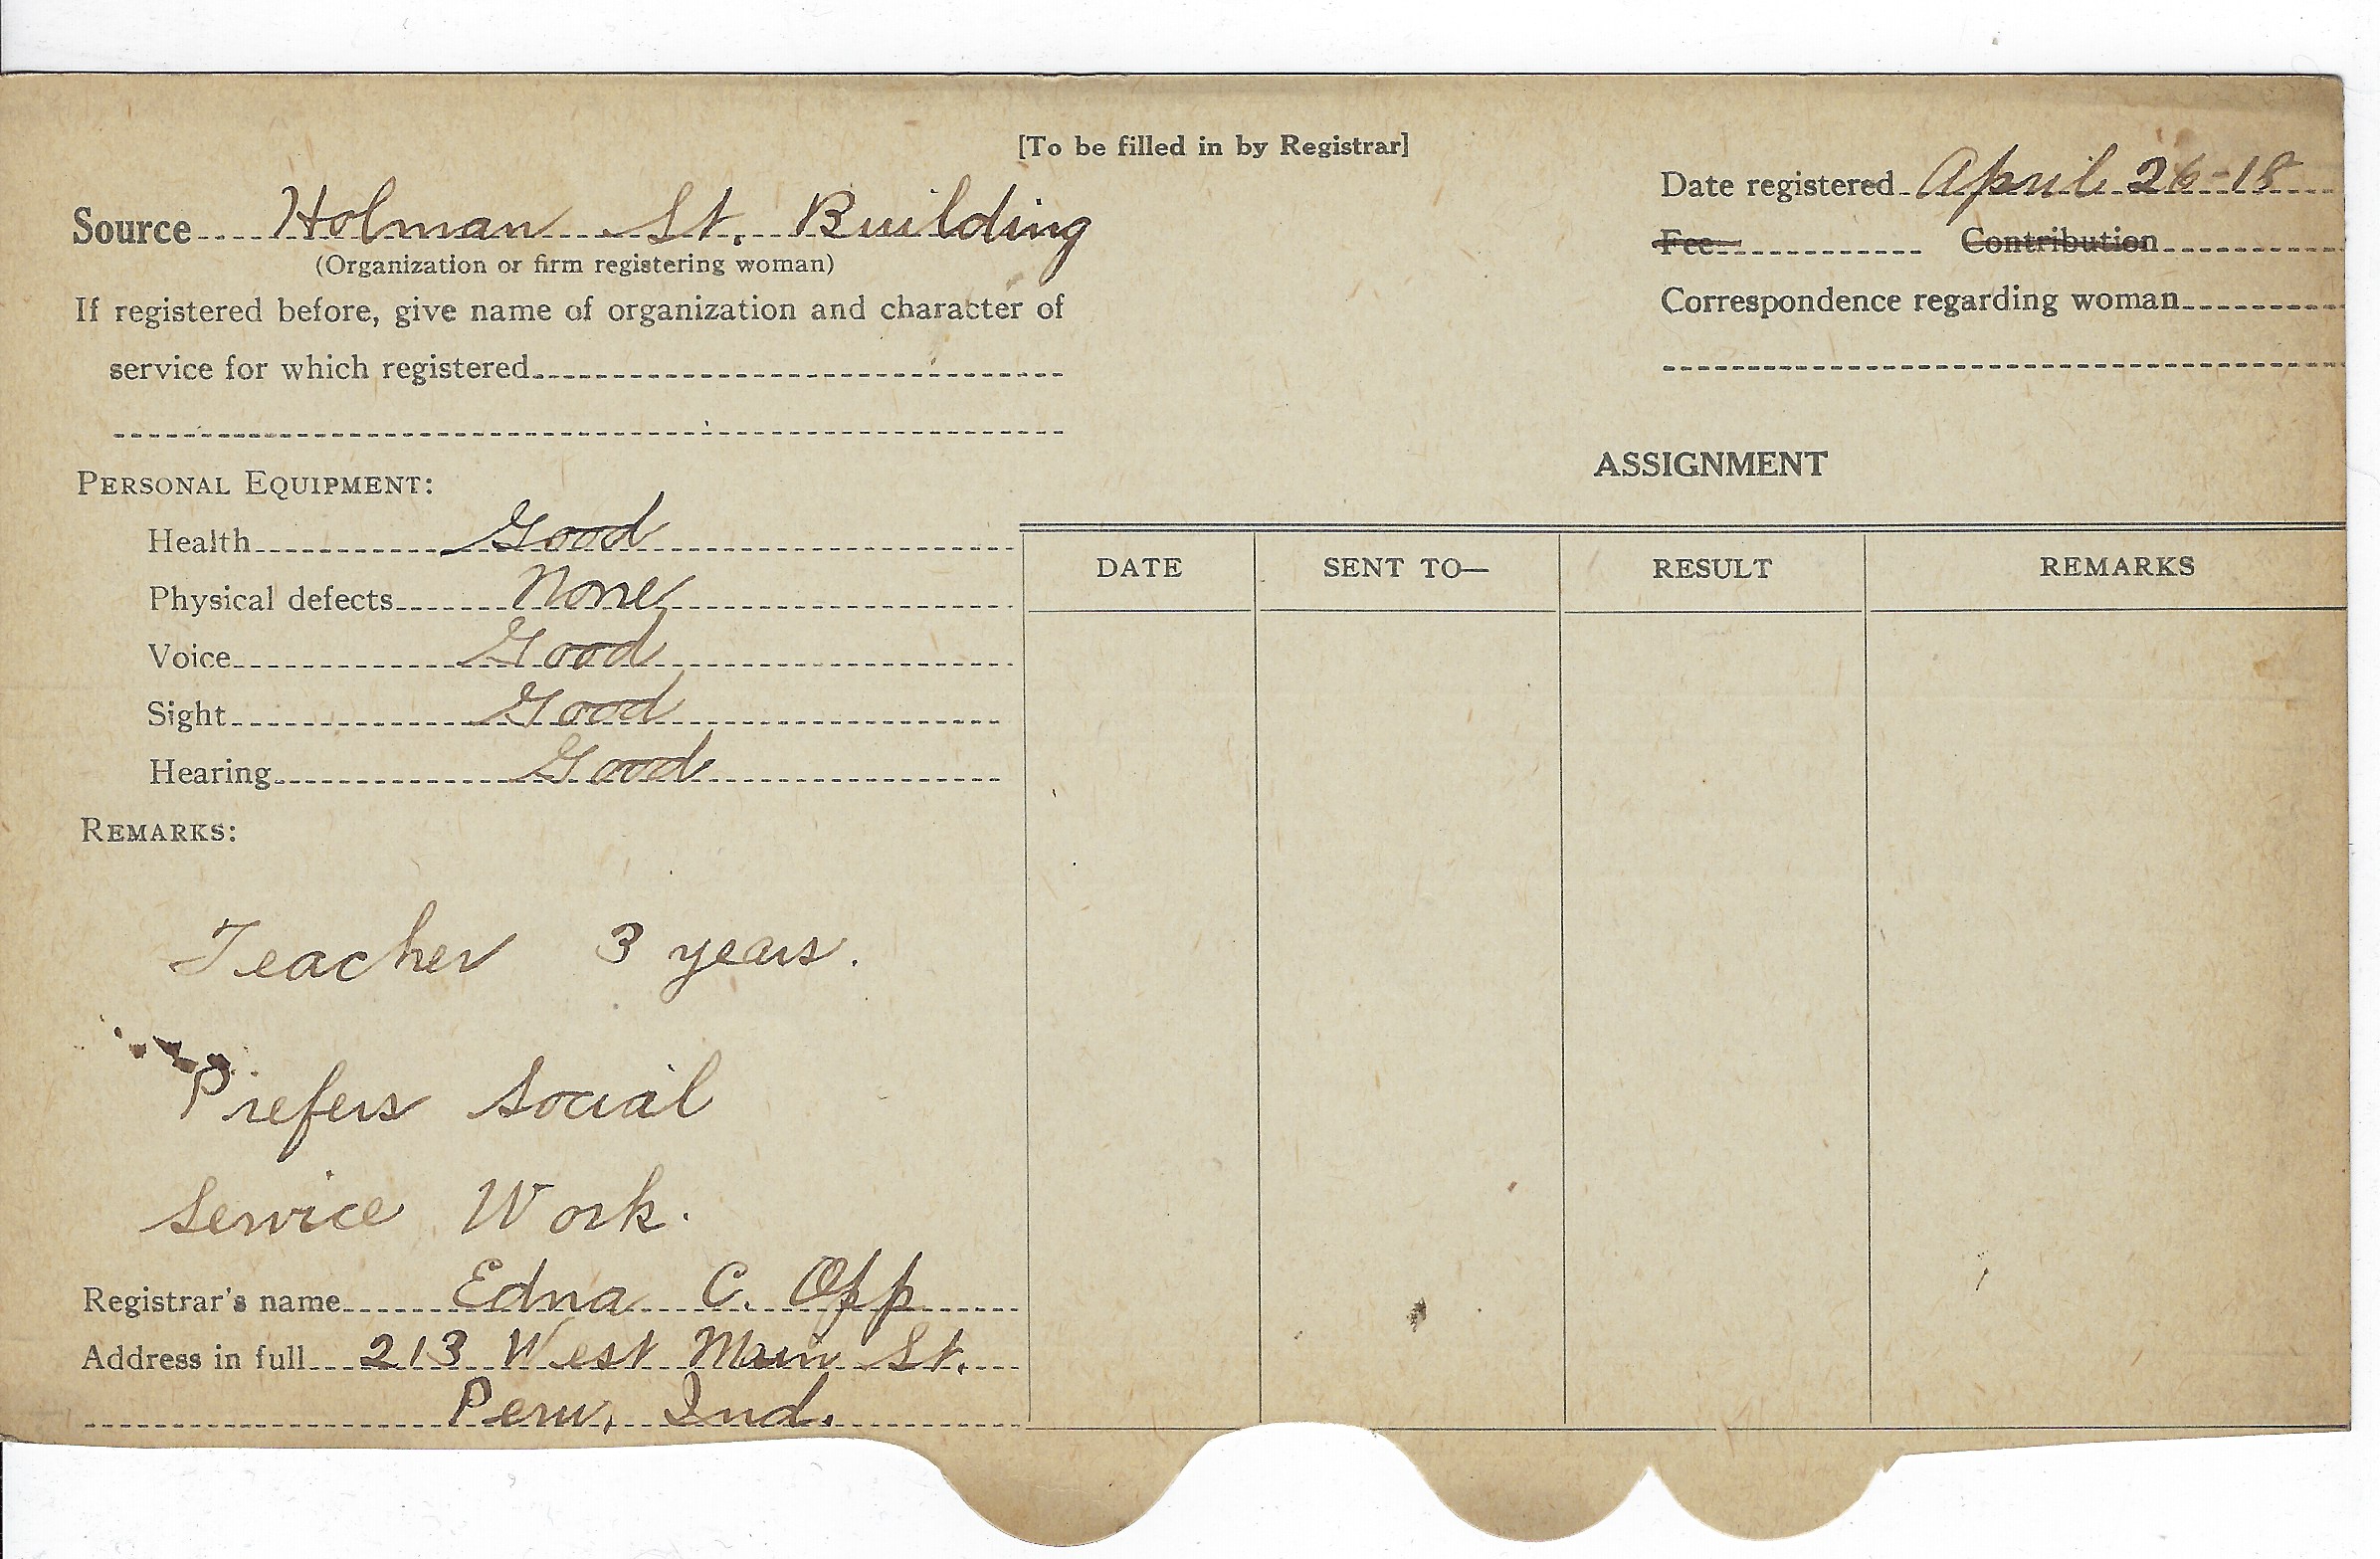 [To be filled in by Registrar]
Source Holman St. Building
(Organization or firm registering woman)
If registered before, give name of organization and character of
service for which registered
Date registered April 26-18
Fee Contribution
Correspondence regarding woman
PERSONAL EQUIPMENT:
Health Good
Physical defects None
Voice Good
Sight Good
Hearing Good
REMARKS:
Teacher 3 years.
Prefers Social
Service Work.
Registrar's name Edna C. Opp
Address in full 213 West Main St.
Peru, Ind.
ASSIGNMENT
DATE SENT TO— RESULT REMARKS